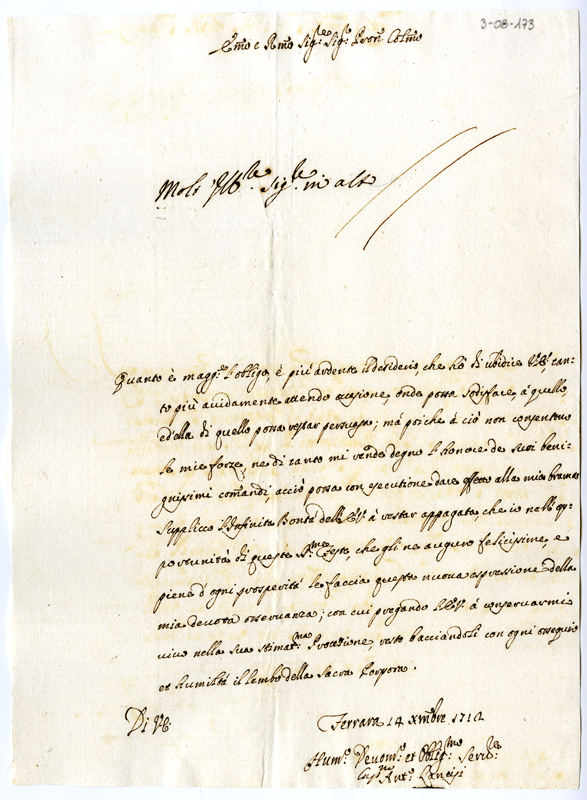 3-08-173
Em̃o e Rm̃o Sig.re Sig.r Pron̄ Colm̃o
Molt' Ill.re Sig.re in alto
Quanto è magg.re l'obligo, è più ardente il desiderio, che hò di ubidire V.E. tan-
to più avidamente attendo occasione, onde possa sodisfare à quello,
ed'ella di questo possa restar persuasa; mà poiche à ciò non consentono
le mie forze, ne di tanto mi rende degno l'honore de suoi beni-
gnissimi comandi, acciò possa con esecutione dare effetto alla mia brama
supplico l'Infinita Bontà dell'E.V. à restar appagata, che io nell'op-
portunità di queste S.me Feste, che gli ne auguro felicissime, e
piene d'ogni prosperità le faccia questa nuova espressione della
mia devota osservanza; con cui pregando l'E.V. à conservarmi
vivo nella sua stimat.ma Protezione, resto bacciandoli con ogni ossequio
et humiltà il lembo della Sacra Porpora.
Di V.E.
Ferrara 14 Xm̃bre 1712
Hum.o Devotm.o et Obblig.mo Serv.re
Ant.o